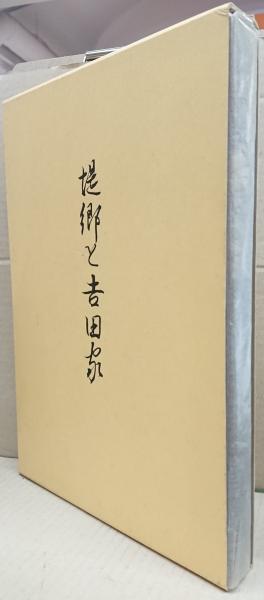 堤郷と吉田家